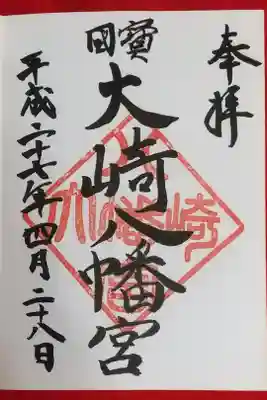 奉拝
國寳
大崎八幡宮
平成二十七年四月二十八日